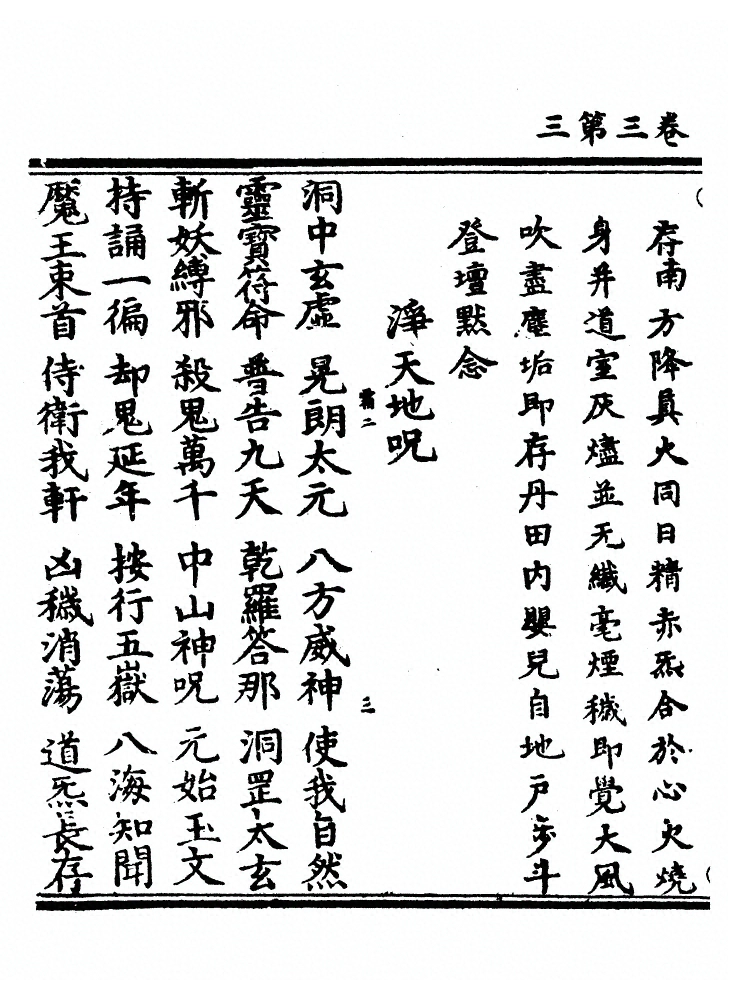 三第三卷
存南方降真火同日精赤炁合於心火燒
身并道室灰燼並无纖毫煙穢即覺大風
吹盡塵垢即存丹田内嬰兒自地户步斗
登壇默念
淨天地呪
霜二
三
洞中玄虛 晃朗太元 八方威神 使我自然
靈寶符命 普告九天 乾羅答那 洞罡太玄
斬妖縛邪 殺鬼萬千 中山神呪 元始玉文
持誦一徧 却鬼延年 按行五嶽 八海知聞
魔王束首 侍衛我軒 凶穢消蕩 道炁長存